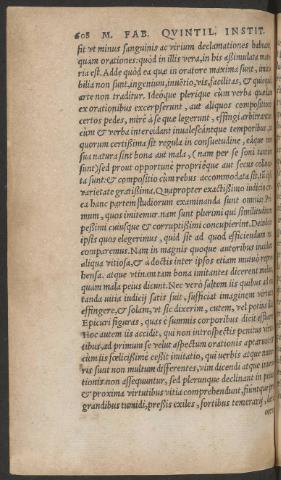 608 M. FAB. QVINTIL. INSTIT.
fit vt minus sanguinis ac virium declamationes habeant,
quam orationes: quod in illis vera, in his assimulata ma-
ria est. Adde quòd ea quæ in oratore maxima sunt, imita-
bilia non sunt, ingenium, inuētio, vis, facilitas, & quicquid
arte non traditur. Ideóque plerique cùm verba quædam
ex orationibus excerpserunt, aut aliquos compositionis
certos pedes, mirè à se quæ legerunt, effingi arbitrantur:
cùm & verba intercidant inualescántque temporibus,
quorum certißima sit regula in consuetudine, eáque non
sua natura sint bona aut mala, (nam per se soni tantùm
sunt) sed prout opportunè propriéque aut secus colloca-
ta sunt: & compositio cùm rebus accommodata sit,
varietate gratißima. Quapropter exactißimo iudicio
ea hanc partem studiorum examinanda sunt omnia. Pri-
mum, quos imitemur. nam sunt plurimi qui similitudinem
peßimi cuiusque & corruptißimi concupierint. Deinde in
ipsis quos elegerimus, quid sit ad quod efficiendum nos
comparemus. Nam in magnis quoque autoribus incidunt
aliqua vitiosa, & à doctis inter ipsos etiam mutuò repre-
hensa. atque vtinam tam bona imitantes dicerent melius,
quàm mala peius dicunt. Nec verò saltem iis quibus ad
tanda vitia iudicij satis fuit, sufficiat imaginem virtutis
effingere, & solam, vt sic dixerim, cutem, vel potius illas
Epicuri figuras, quas è summis corporibus dicit effluere.
Hoc autem iis accidit, qui non introspectis penitus virtu-
tibus, ad primum se velut aspectum orationis aptarunt: &
cùm iis fœlicißimè ceßit imitatio, qui verbis atque nume-
ris sunt non multùm differentes, vim dicendi atque inuen-
tionis non assequuntur, sed plerunque declinant in peius,
& proxima virtutibus vitia comprehendunt, fiuntque pro
grandibus tumidi, preßis exiles, fortibus temerarij,